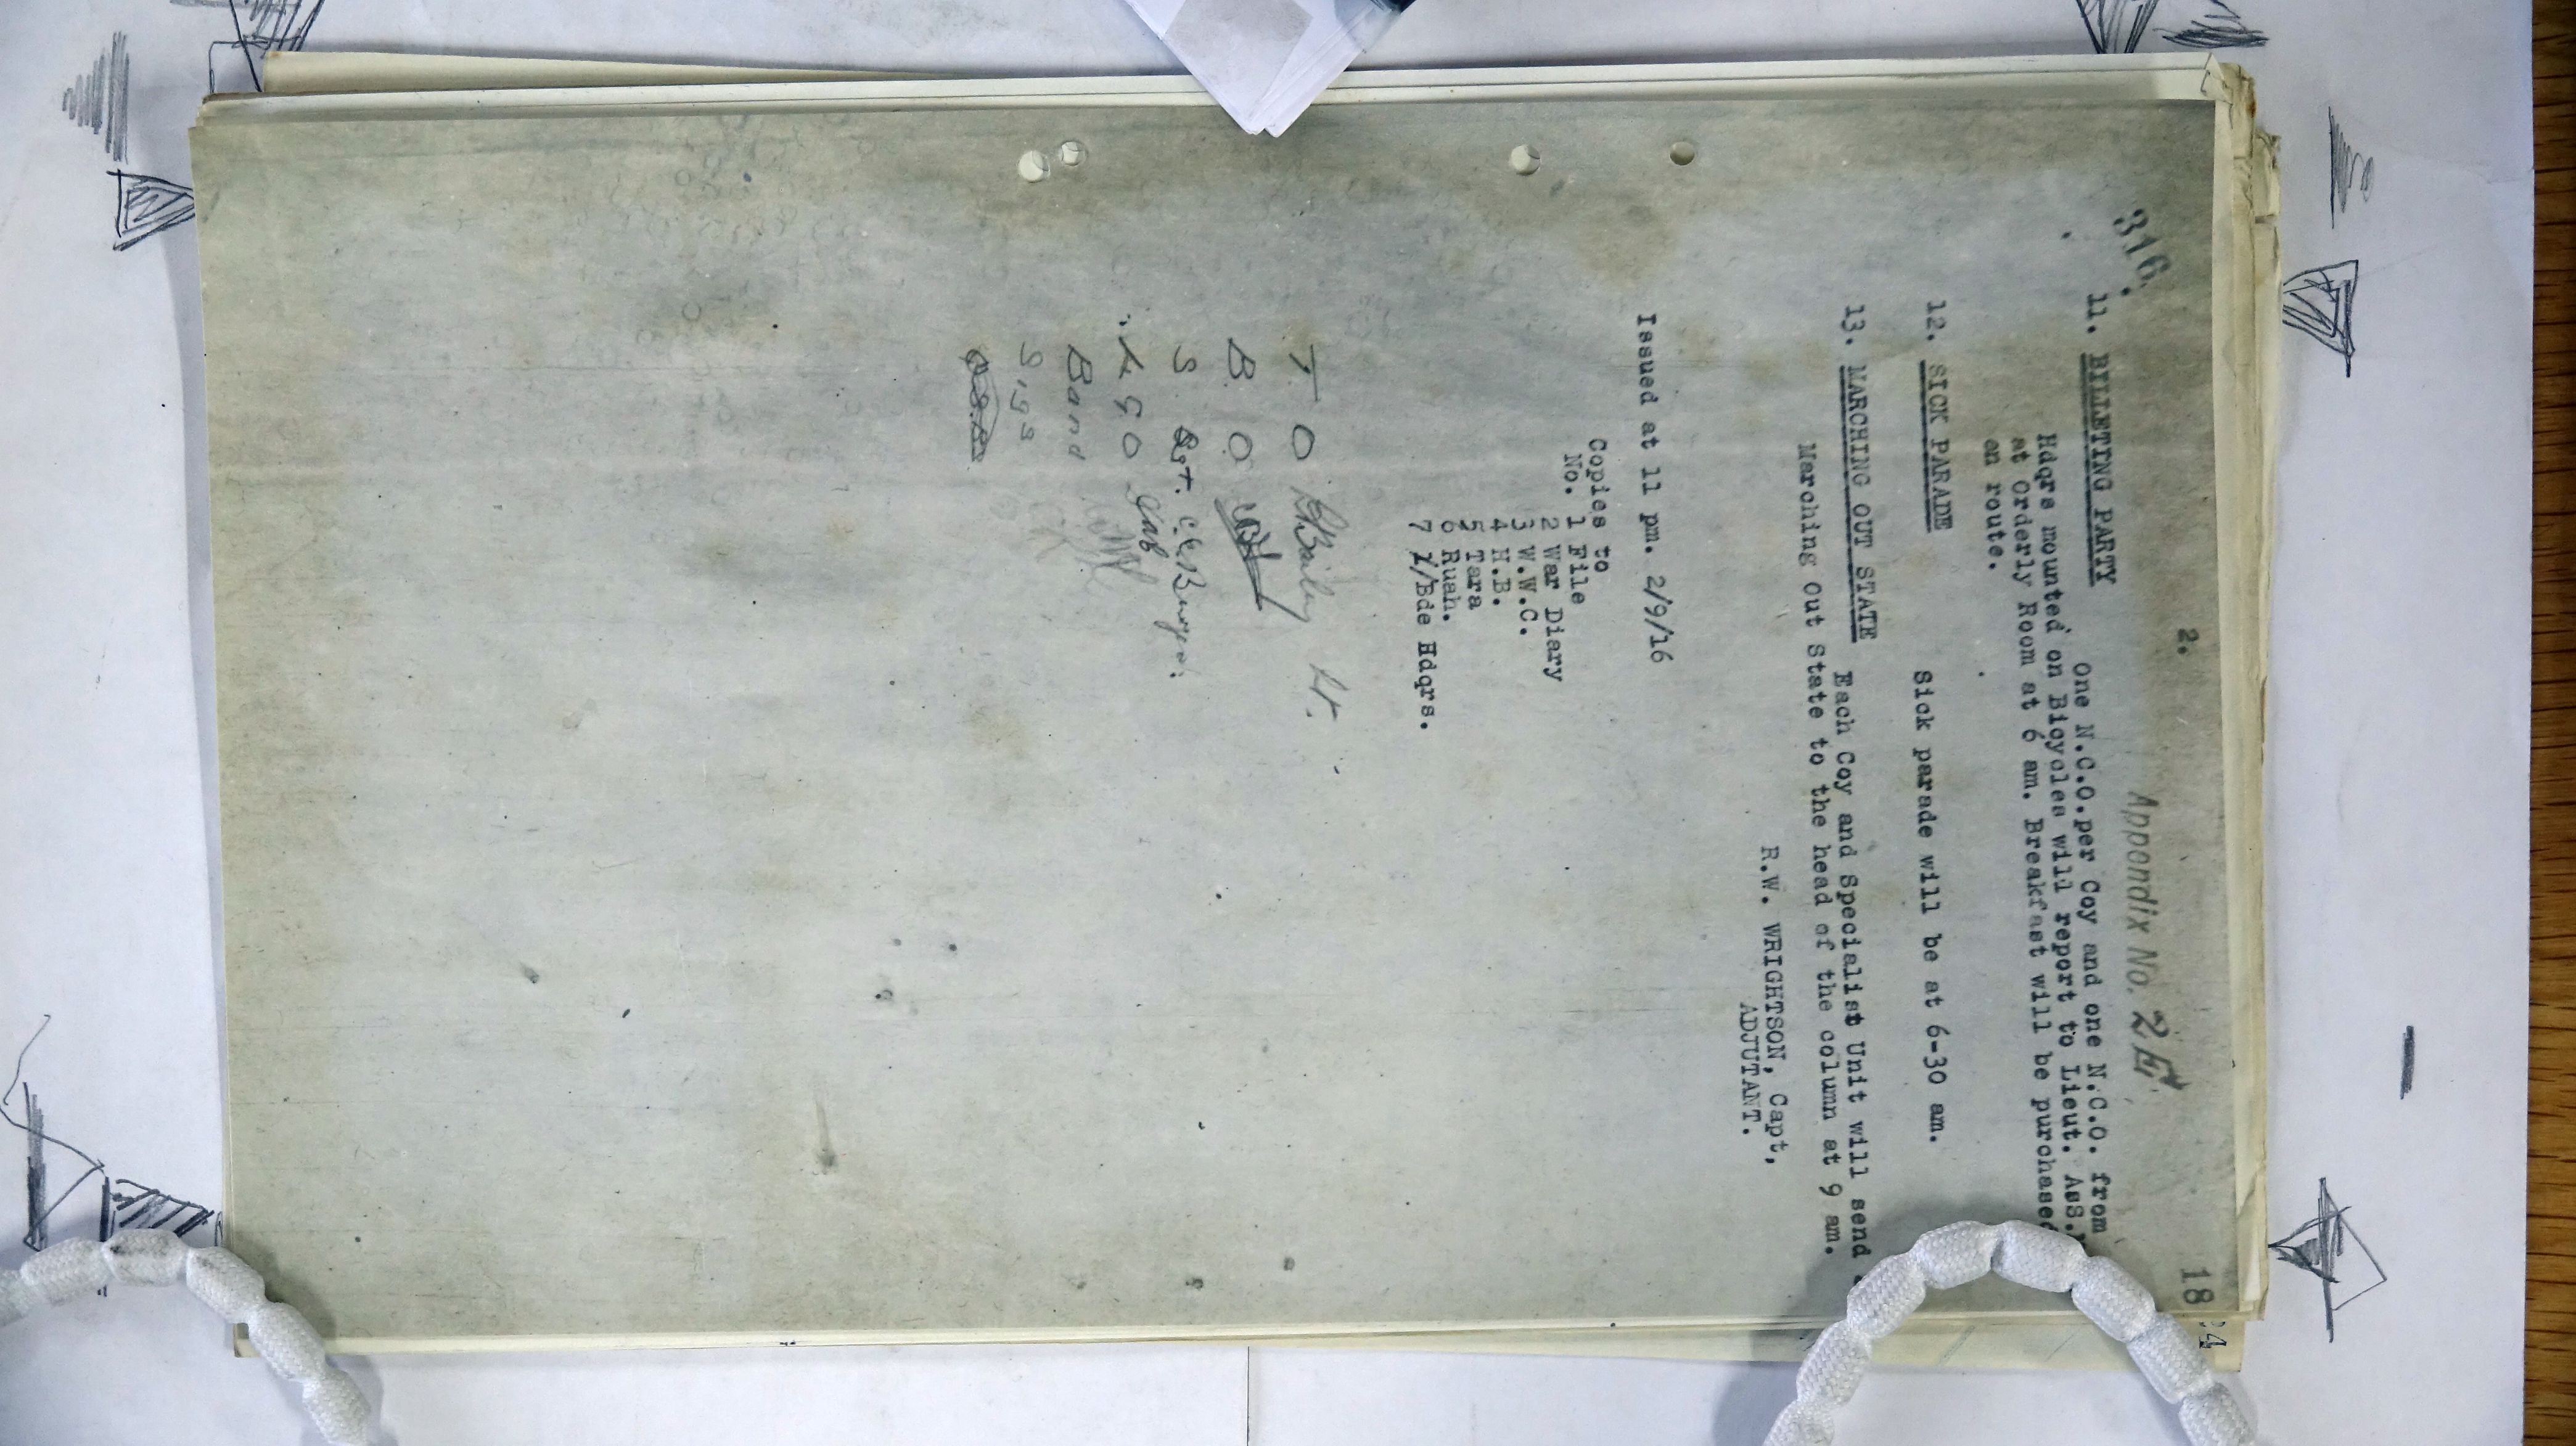 2.
18
316.
Appendix No. 2E
11. BILLETING PARTY
One N.C.O. per Coy and one N.C.O. from
Hdqrs mounted on Bicycles will report to Lieut.
at Orderly Room at 6 am. Breakfast will be purchased
en route.
12. SICK PARADE
Sick parade will be at 6-30 am.
13. MARCHING OUT STATE
Each Coy and Specialist Unit will send
Marching Out State to the head of the column at 9 am.
R.W. WRIGHTSON, Capt,
ADJUTANT.
Issued at 11 pm. 2/9/16
Copies to
No. 1 File
2 War Diary
3 W.W.C.
4 H.B.
5 Tara
6 Ruah.
7 /Bde Hdqrs.
T O Bailey Lt.
B. O
S Sgt.
L G O
Band
Sigs